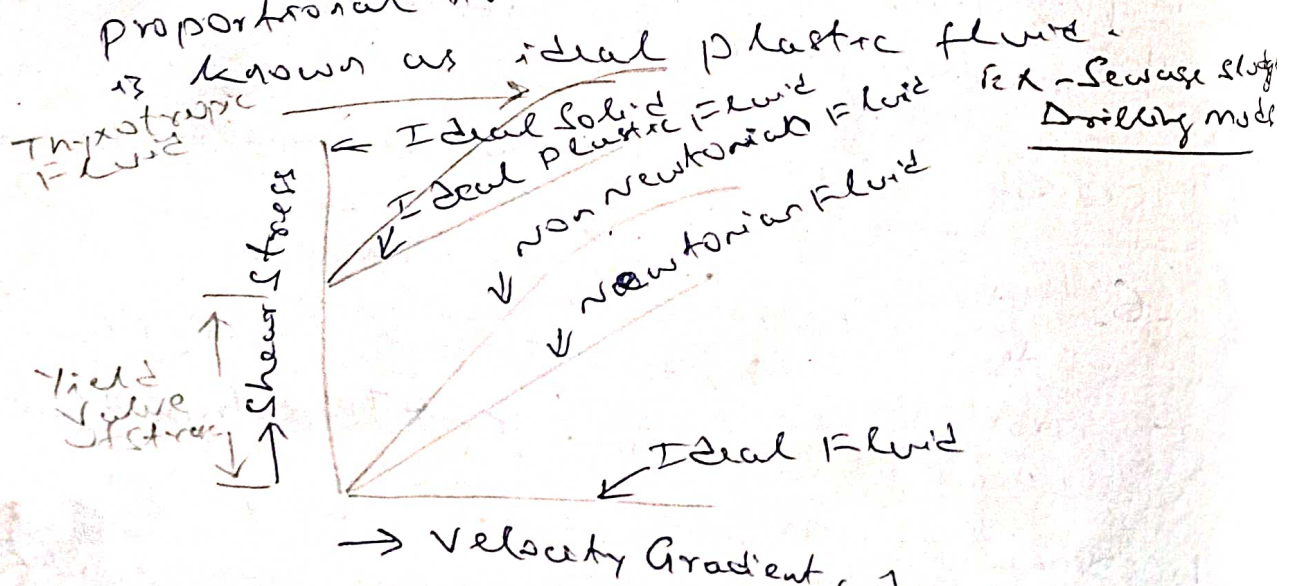 proportional
is known as ideal plastic fluid.
Ex - Sewage Sludg
Drilling muds
Thyxotropic
Fluid
← Ideal Solid
Ideal Plastic Fluid
Non Newtonian Fluid
Newtonian Fluid
→ Shear Stress
Yield
Value
of stress
Ideal Fluid
→ Velocity Gradient.